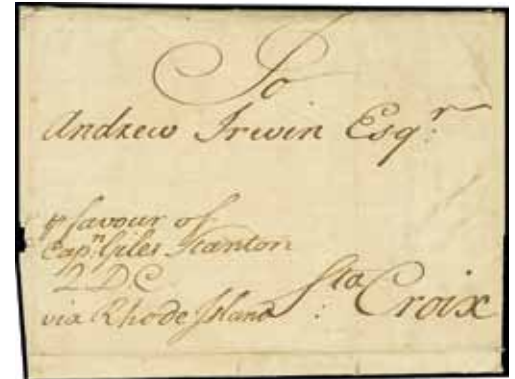 To
Andrew Irwin Esqr.
⅌ favour of
Capn. Giles Stanton
2 D C
via Rhode Island
Sta. Croix